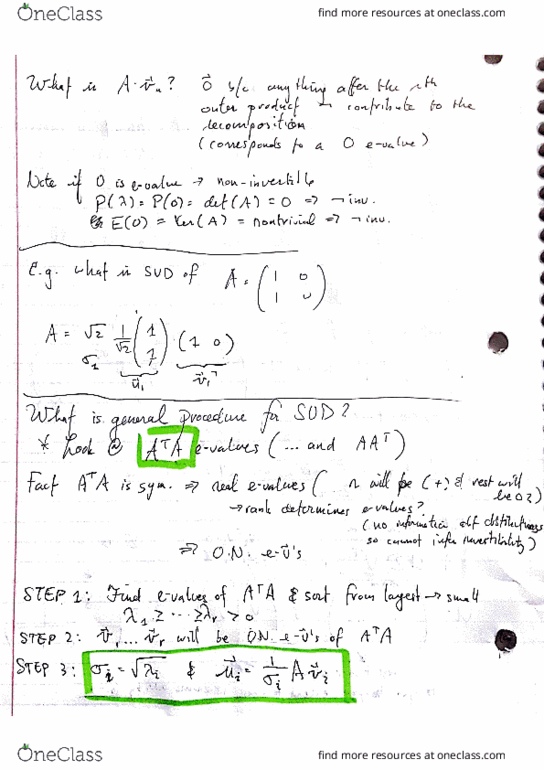 OneClass
find more resources at oneclass.com
What is A·v⃗ₙ? 0⃗ b/c anything after the rth
outer product contribute to the
decomposition
(corresponds to a 0 e-value)
Note if 0 is e-value → non-invertible
P(λ) = P(0) = det(A) = 0 ⇒ ¬ inv.
E(0) = Ker(A) = nontrivial ⇒ ¬ inv.
E.g. what is SVD of A = (1 0
1 0)
A = √2 1/√2 (1
1) (1 0)
σ₁ u⃗₁ v⃗₁ᵀ
What is general procedure for SVD?
* Look @ AᵀA e-values (... and AAᵀ)
Fact AᵀA is sym. ⇒ real e-values ( r will be (+) & rest will
be 0?)
→ rank determines e-values?
(no information
so cannot infer invertibility)
⇒ O.N. e-v⃗'s
STEP 1: Find e-values of AᵀA & sort from largest → small
λ₁ ≥ ... ≥ λᵣ > 0
STEP 2: v⃗₁ ... v⃗ᵣ will be O.N. e-v⃗'s of AᵀA
STEP 3: σᵢ = √λᵢ & u⃗ᵢ = 1/σᵢ A v⃗ᵢ
OneClass
find more resources at oneclass.com